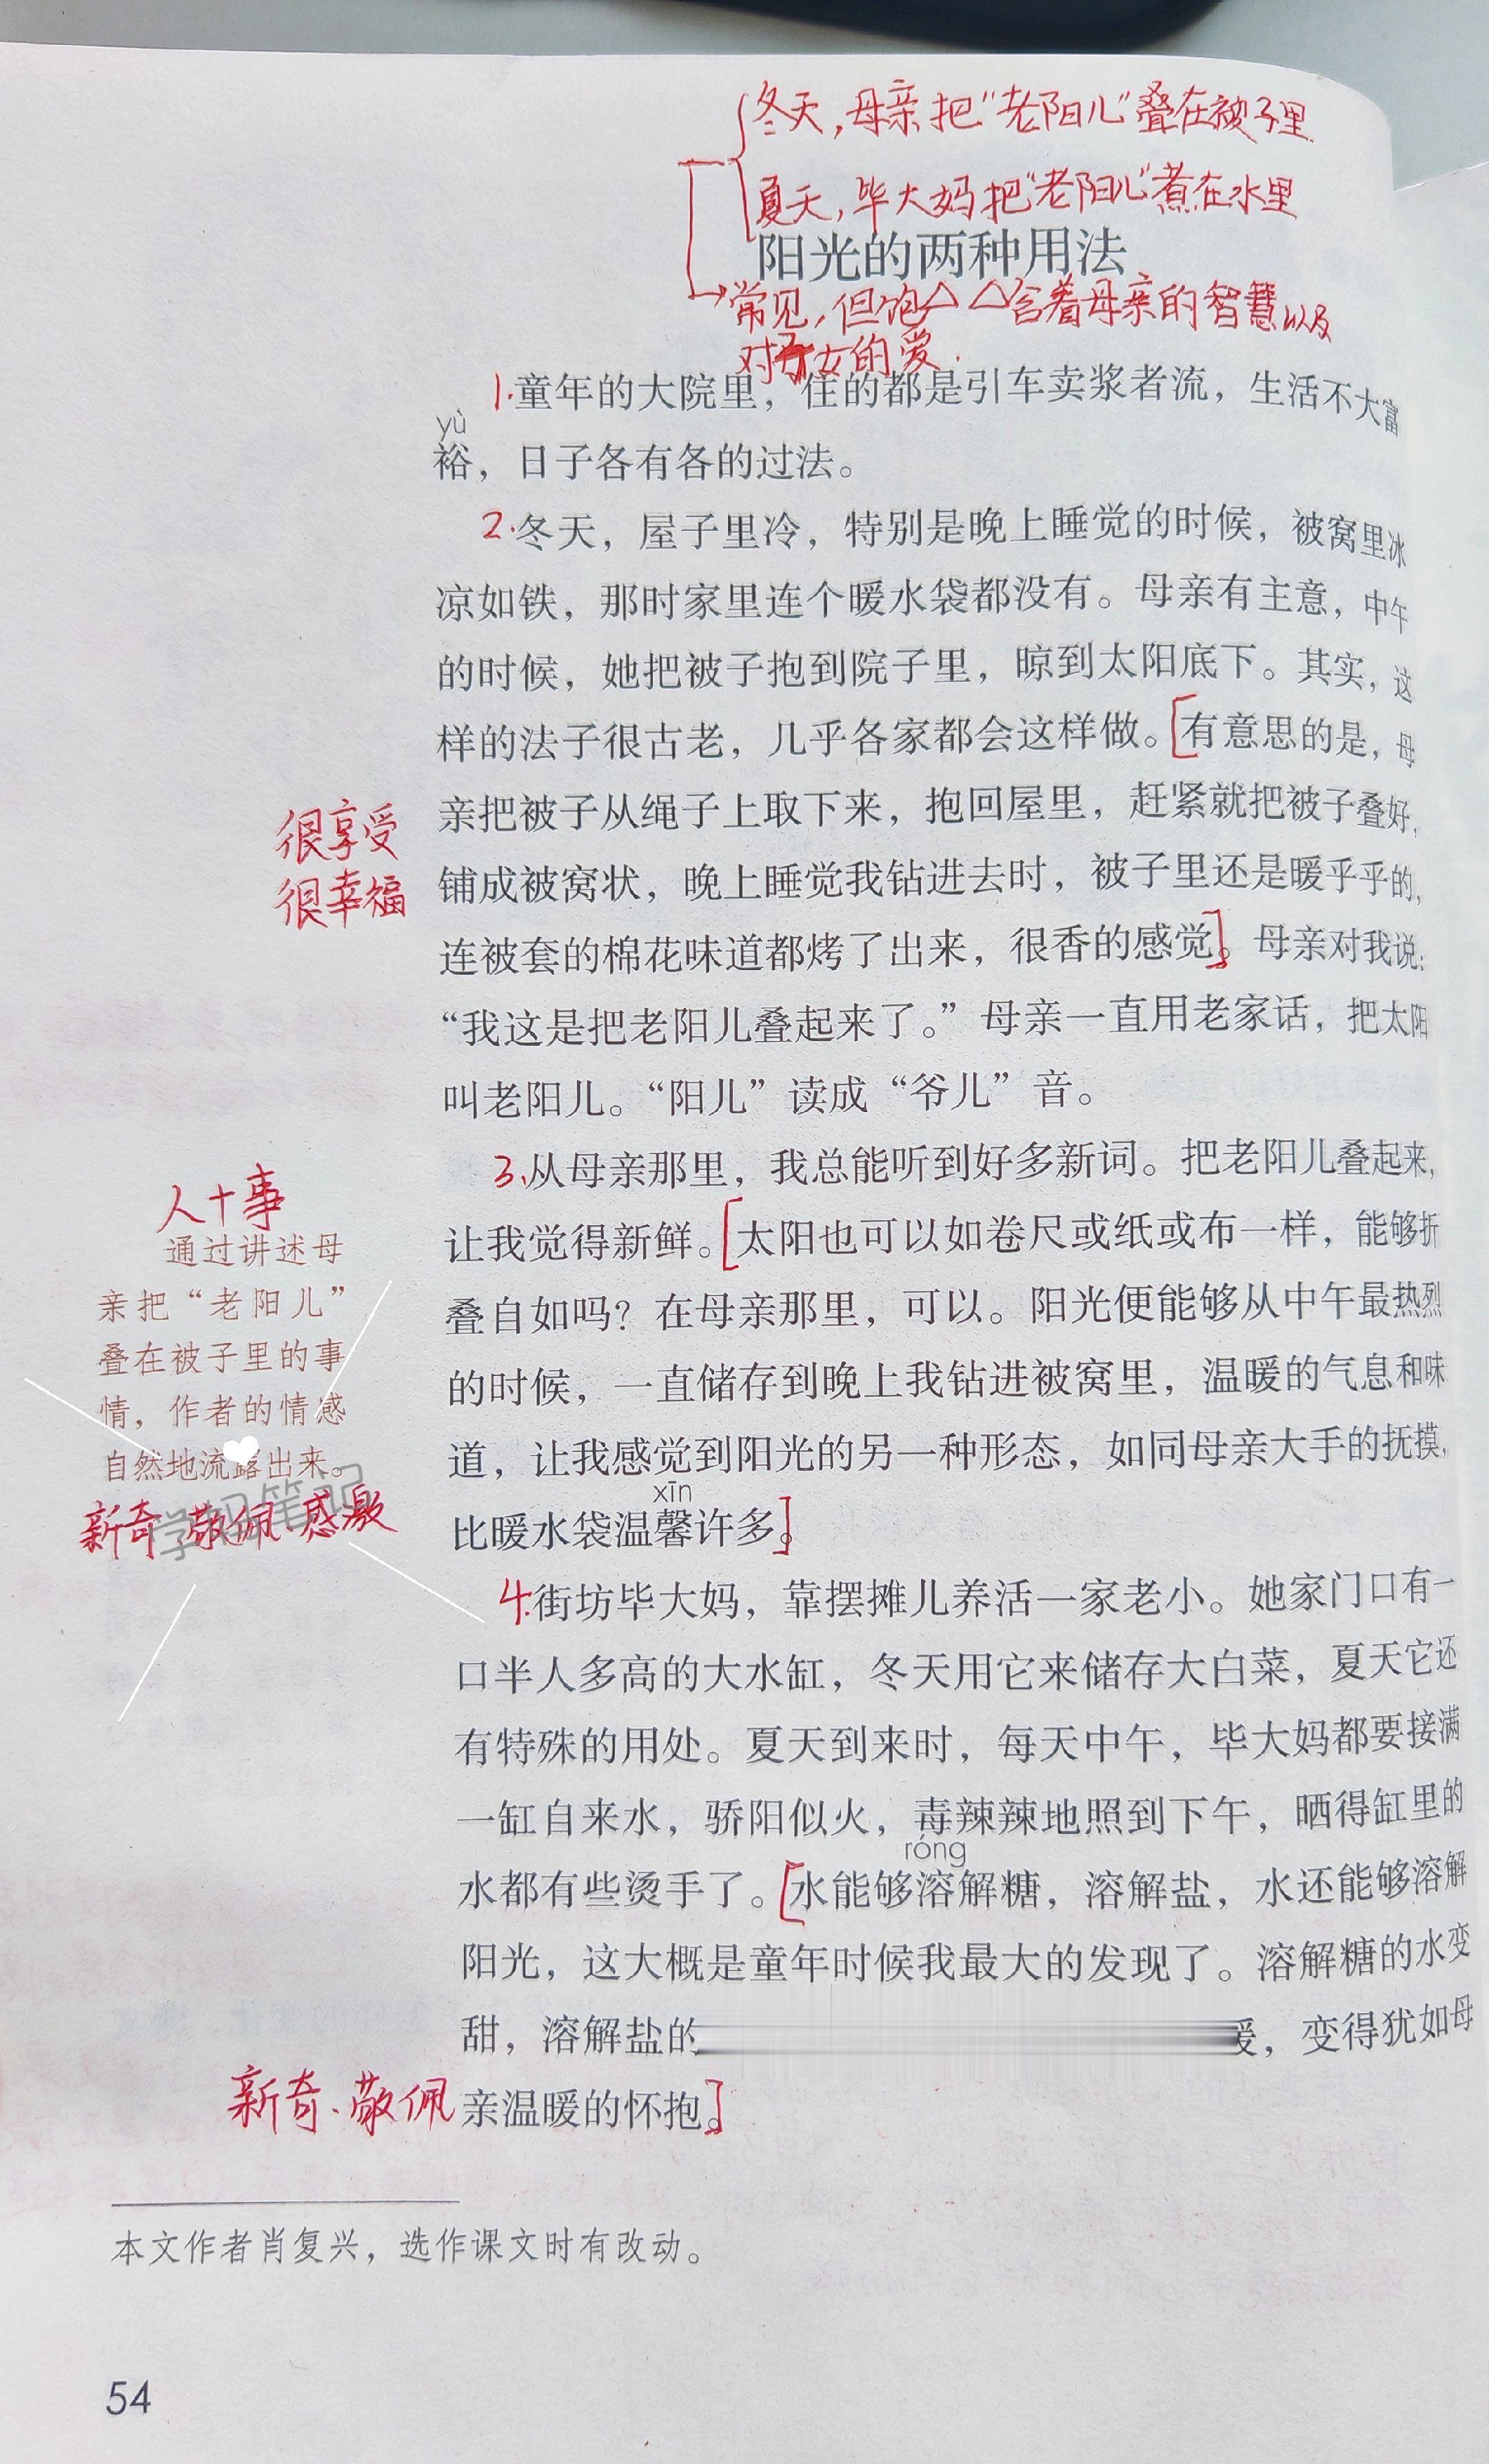 冬天,母亲把“老阳儿”叠在被子里
夏天,毕大妈把“老阳儿”煮在水里
阳光的两种用法
常见,但饱含着母亲的智慧以及
对子女的爱.
1.童年的大院里，住的都是引车卖浆者流，生活不大富
yù
裕，日子各有各的过法。
2.冬天，屋子里冷，特别是晚上睡觉的时候，被窝里冰
凉如铁，那时家里连个暖水袋都没有。母亲有主意，中午
的时候，她把被子抱到院子里，晾到太阳底下。其实，这
样的法子很古老，几乎各家都会这样做。[有意思的是，母
亲把被子从绳子上取下来，抱回屋里，赶紧就把被子叠好，
铺成被窝状，晚上睡觉我钻进去时，被子里还是暖乎乎的，
连被套的棉花味道都烤了出来，很香的感觉]。母亲对我说：
“我这是把老阳儿叠起来了。”母亲一直用老家话，把太阳
叫老阳儿。“阳儿”读成“爷儿”音。
很享受
很幸福
3.从母亲那里，我总能听到好多新词。把老阳儿叠起来，
让我觉得新鲜。[太阳也可以如卷尺或纸或布一样，能够折
叠自如吗？在母亲那里，可以。阳光便能够从中午最热烈
的时候，一直储存到晚上我钻进被窝里，温暖的气息和味
道，让我感觉到阳光的另一种形态，如同母亲大手的抚摸，
xīn
比暖水袋温馨许多。]
人十事
通过讲述母
亲把“老阳儿”
叠在被子里的事
情，作者的情感
自然地流露出来。
新奇 敬佩·感激
学妈笔记
4.街坊毕大妈，靠摆摊儿养活一家老小。她家门口有一
口半人多高的大水缸，冬天用它来储存大白菜，夏天它还
有特殊的用处。夏天到来时，每天中午，毕大妈都要接满
一缸自来水，骄阳似火，毒辣辣地照到下午，晒得缸里的
róng
水都有些烫手了。[水能够溶解糖，溶解盐，水还能够溶解
阳光，这大概是童年时候我最大的发现了。溶解糖的水变
甜，溶解盐的 ，变得犹如母
亲温暖的怀抱。]
新奇、敬佩
本文作者肖复兴，选作课文时有改动。
54